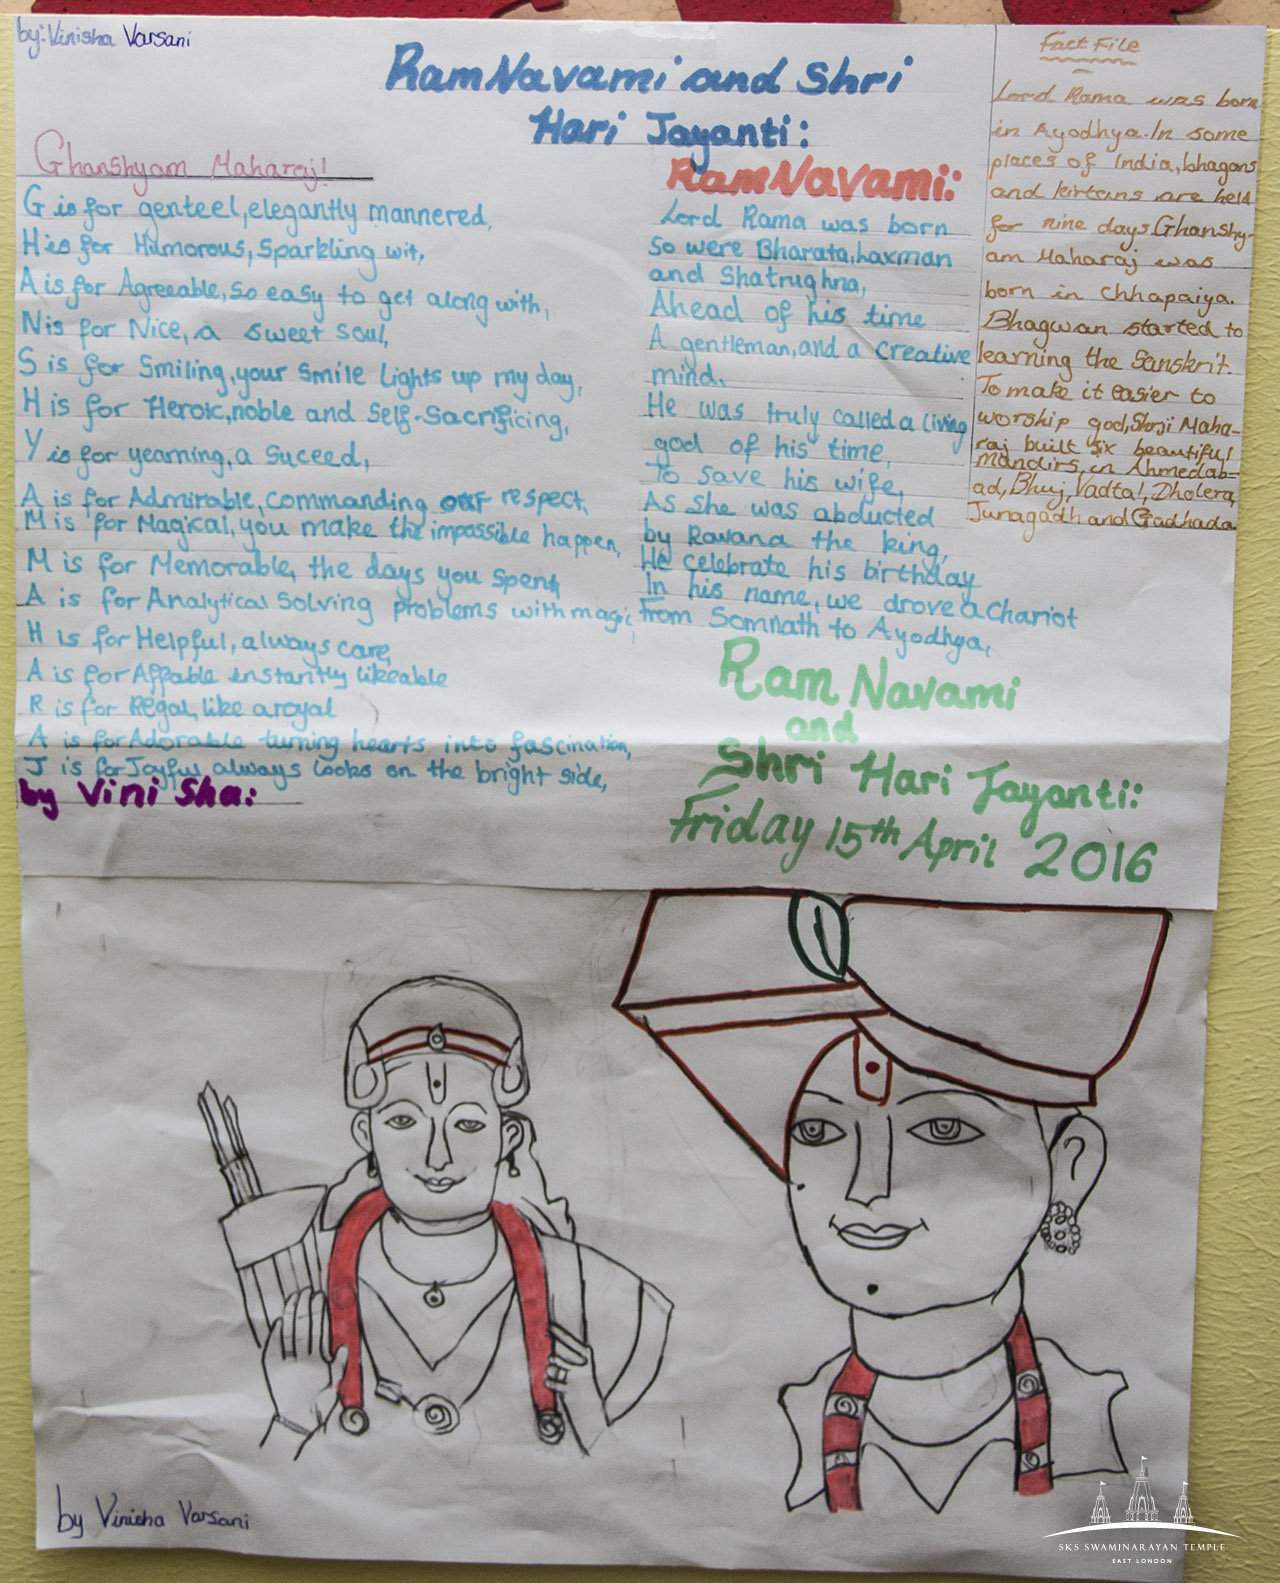 by: Vinisha Varsani
Ram Navami and Shri
Hari Jayanti:
Ghanshyam Maharaj!
G is for genteel, elegantly mannered,
H is for Humorous, Sparkling wit,
A is for Agreeable, so easy to get along with,
N is for Nice, a sweet soul,
S is for Smiling, your smile lights up my day,
H is for Heroic, noble and Self-Sacrificing,
Y is for yearning, a Suceed,
A is for Admirable, commanding our respect,
M is for Magical, you make the impossible happen,
M is for Memorable, the days you spent
A is for Analytical Solving problems with magic,
H is for Helpful, always care,
A is for Affable instantly likeable
R is for Regal, like a royal
A is for Adorable turning hearts into fascination,
J is for Joyful always looks on the bright side,
by Vini Sha:
Ram Navami:
Lord Rama was born
So were Bharata, Laxman
and Shatrughna,
Ahead of his time
A gentleman, and a creative
mind.
He was truly called a living
god of his time,
To save his wife,
As she was abducted
by Ravana the king,
He celebrate his birthday
In his name, we drove a Chariot
From Somnath to Ayodhya,
Ram Navami
and
Shri Hari Jayanti:
Friday 15th April 2016
Fact File
Lord Rama was born
in Ayodhya. In some
places of India, bhagans
and kirtans are held
for nine days. Ghanshy-
am Maharaj was
born in Chhapaiya.
Bhagwan started to
learning the Sanskrit.
To make it easier to
worship god, Shriji Maha-
raj built six beautiful
mandirs, in Ahmedab-
ad, Bhuj, Vadtal, Dholera,
Junagadh and Gadhada
by Vinisha Varsani
SKS SWAMINARAYAN TEMPLE
EAST LONDON